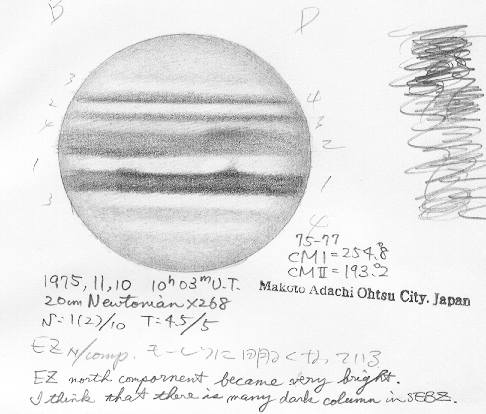 B P
3
2
4
1
3
4
3
2
1
4
75-77
CMI = 254.°8
CMII = 193.°2
1975, 11, 10 10h 03m U.T.
20cm Newtonian X268
Makoto Adachi Ohtsu City. Japan
S=1(2)/10 T=4.5/5
EZ N/comp. に明るくなっている
EZ north compornent became very bright.
I think that there is many dark column in SEBZ.